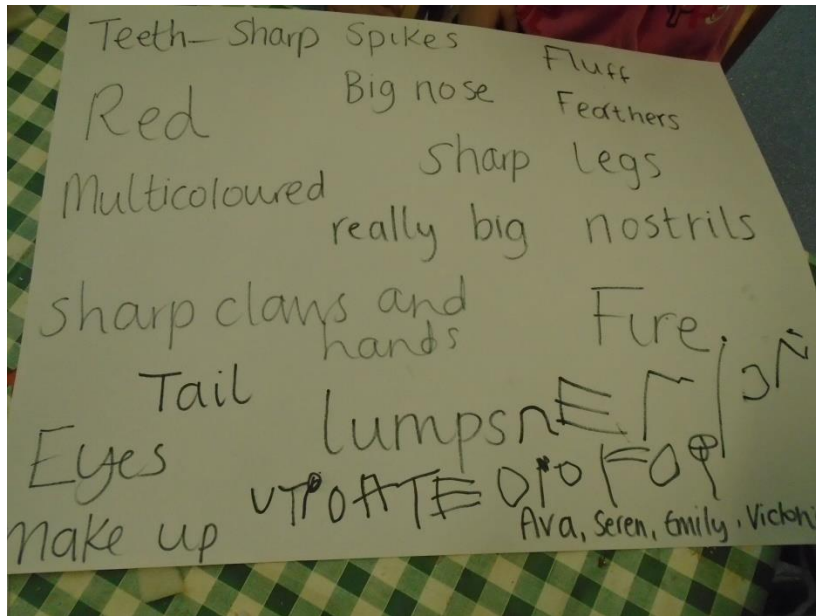 Teeth- Sharp Spikes
Fluff
Big nose
Feathers
Red
Sharp legs
Multicoloured
really big nostrils
sharp claws and
hands
Fire
Tail
lumps
Eyes
make up
Ava, Seren, Emily, Victori